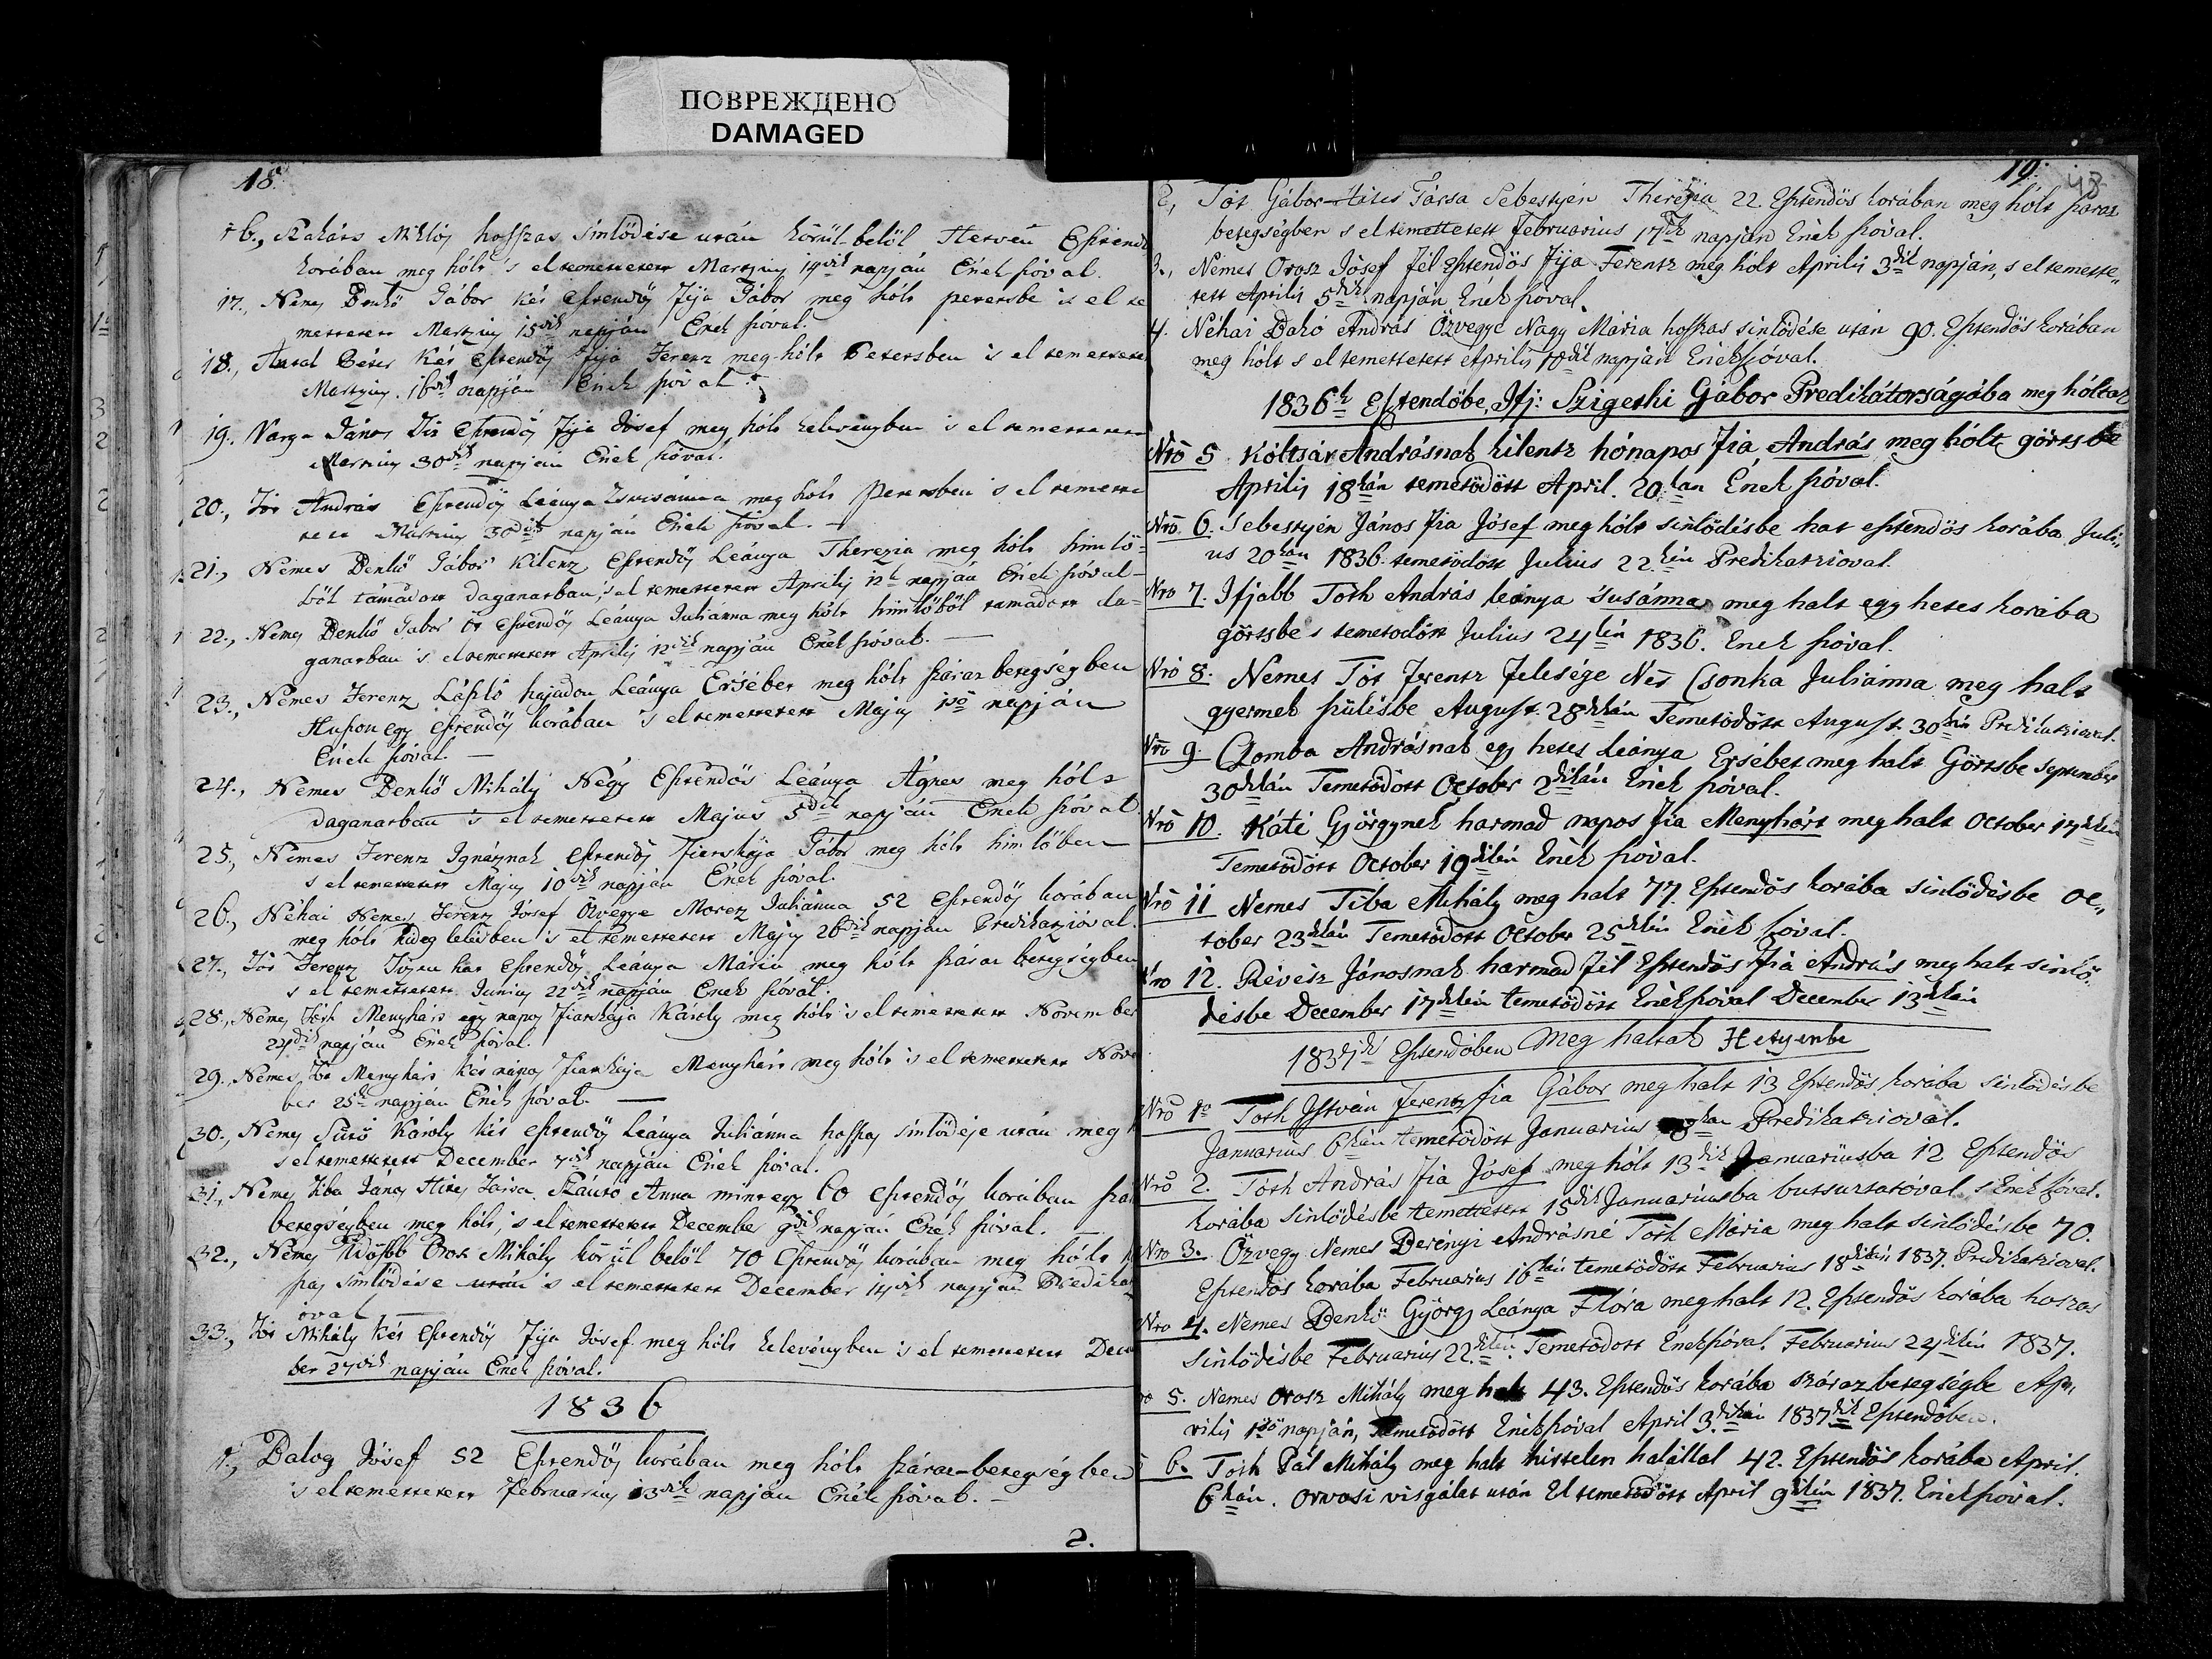 ПОВРЕЖДЕНО
DAMAGED
18.
16., Szakáts Miklós hosszas sinlödése után körül-belöl Hetven Esztend
korában meg hólt 's el temettetett Martzius 14dik napján Ének szóval.
17., Nemes Denkö Gábor két esztendös fija Gábor meg hólt petetsbe 's el te
mettetett Martzius 15dik napján Ének szóval.
18., Antal Péter két esztendös fija Ferentz meg hólt Petetsben 's el temettete
Martzius 16dik napján Ének szóval
19. Varga János esztendös fija Jósef meg hólt kelevényben 's el temettetett
Martzius 30dik napján Ének szóval.
20., Tót András esztendös Leánya Zsusánna meg hólt petetsben 's el temette
tett Martzius 30dik napján Ének szóval. —
21., Nemes Denkö Gábor kilentz Esztendös Leánya Therezia meg hólt himlö-
böl támadott daganatban, 's el temettetett Aprilis 12k napján Ének szóval —
22., Nemes Denkö Gábor öt esztendös Leánya Juliánna meg hólt himlöböl támadott da-
ganatban 's el temettetett Aprilis 12dik napján Ének szóval. —
23., Nemes Ferentz László hajadon Leánya Ersébet meg hólt száraz betegségben
Huszon egy esztendös korában 's el temettetett Május 1sö napján
Ének szóval —
24., Nemes Denkö Mihály Négy Esztendös Leánya Ágnes meg hólt
daganatban 's el temettetett Majus 5dik napján Ének szóval
25., Nemes Ferentz Ignátznak esztendös fiatskája Gábor meg hólt himlöben
s el temettetett Május 10dik napján Ének szóval.
26., Néhai Nemes Ferentz Jósef Özvegye Moretz Juliánna 52 esztendös korában
meg hólt hideg lelésben 's el temettetett Május 26dik napján Predikatzióval.
27., Tót Ferentz Tizen hat esztendös Leánya Mária meg hólt száraz betegségben
s el temettetett Junius 22dik napján Ének szóval.
28., Nemes Tóth Menyhárt egy napos fiatskája Károly meg hólt 's el temettetett November
24dik napján Ének szóval.
29., Nemes Tót Menyhárt két napos fiatskája Menyhárt meg hólt 's el temettetett Nove
ber 25k napján Ének szóval. —
30., Nemes Sütö Károly két esztendös Leánya Juliánna hosszas sinlödése után meg
s el temettetett December 7dik napján Ének szóval.
31., Nemes Tiba János Hites Társa Szántó Anna mint egy 60 esztendös korában szá
betegségben meg hólt, 's el temettetett December 9dik napján Ének szóval. —
32., Nemes Idösbb Orosz Mihály körül belöl 70 Esztendös korában meg hólt
szas sinlödése után 's el temettetett December 14dik napján Predika
óval —
33., Tót Mihály két esztendös fija Jósef meg hólt kelevényben 's el temettetett Dece
ber 27dik napján Ének szóval.
1836
1., Balog Jósef 52 Esztendös korában meg hólt száraz-betegségben
's el temettetett Februarius 13dik napján Ének szóval. —
2.
19.
48
2, Tót Gábor Hites Társa Sebestyén Therézia 22. Esztendös korában meg hólt száraz
betegségben s el temettetett Februarius 17dik napján Ének szóval.
3., Nemes Orosz Jósef fél esztendös fija Ferentz meg hólt Aprilis 3dik napján, s el temette„
tett Aprilis 5dik napján Ének szóval.
4. Néhai Dakó András Özvegye Nagy Mária hoszas sinlödése után 90. Esztendös korában
meg hólt s el temettetett Aprilis 18dik napján Énekszóval.
1836k Esztendöbe, Ifj: Szigethi Gábor Predikátorságába meg hóltak
Nrō 5. Kóltsár Andrásnak kilentz hónapos fia András meg hólt görtsbe
Aprilis 18kán temetödött April. 20kan Ének szóval.
Nrō. 6. Sebestyén János fia Jósef meg hólt sinlödésbe hat esztendös korába. Juli„
us 20kán 1836. temetödött Julius 22.kén Predikatzioval.
Nro 7. Ifjabb Toth András leánya Susánna meg halt egy hetes korába
görtsbe s temetodött Julius 24kén 1836. Enek szóval.
Nro 8. Nemes Tót Ferentz felesége Nēs Csonka Juliánna meg halt
gyermek szülésbe August. 28dikán Temetödött August. 30kán Predikatzioval.
Nro 9. Czomba Andrásnak egy hetes Leánya Ersébet meg halt Görtsbe September
30dikán Temetödött October 2dikán Enek szóval.
Nrō 10. Káti Györgynek harmad napos fia Menyhárt meg halt October 17dikén
Temetödött October 19dikén Enek szóval.
Nrō 11 Nemes Tiba Mihály meg halt 77. Esztendös korába sinlödésbe Oc„
tober 23dikán Temetödött October 25dikén Enek szóval.
Nro 12. Révész Jánosnak harmad fél Esztendös fia András meg halt sinlö„
désbe December 17dikén temetödött Enekszóval December 13dikán
1837dik Esztendöben Meg haltak Hetyenbe
Nrō 1ō Toth Jstván Ferentz fia Gábor meg halt 13 Esztendös korába sinlödésbe
Januarius 6kán temetödött Januarius 8kan Predikatzioval.
Nrō 2. Tóth András fia Jósef meg hólt 13dik Januariusba 12 Esztendös
korába sinlödésbe temettetett 15dik Januariusba butsuztatóval, s Enek szóval.
Nro 3. Özvegy Nemes Derényi Andrásné Toth Mária meg halt sinlödésbe 70.
Esztendös korába Februarius 16kán temetödött Februarius 18dikán 1837. Predikatzioval.
Nro 4. Nemes Denkö György Leánya Flóra meg halt 12. Esztendös korába hoszas
sinlödésbe Februarius 22.dikén. Temetödött Enekszóval. Februarius 24dikén 1837.
ro 5. Nemes Orosz Mihály meg halt 43. Esztendös korába szárazbetegségbe Ap„
rilis 1sö napján, Temetödött Enekszóval April 3.dikán 1837dik Esztendöben.
6. Toth Pál Mihály meg halt hirtelen halállal 42. Esztendös korába April.
6kán. Orvosi visgálat után El temetödött April 9dikén 1837. Enekszóval.